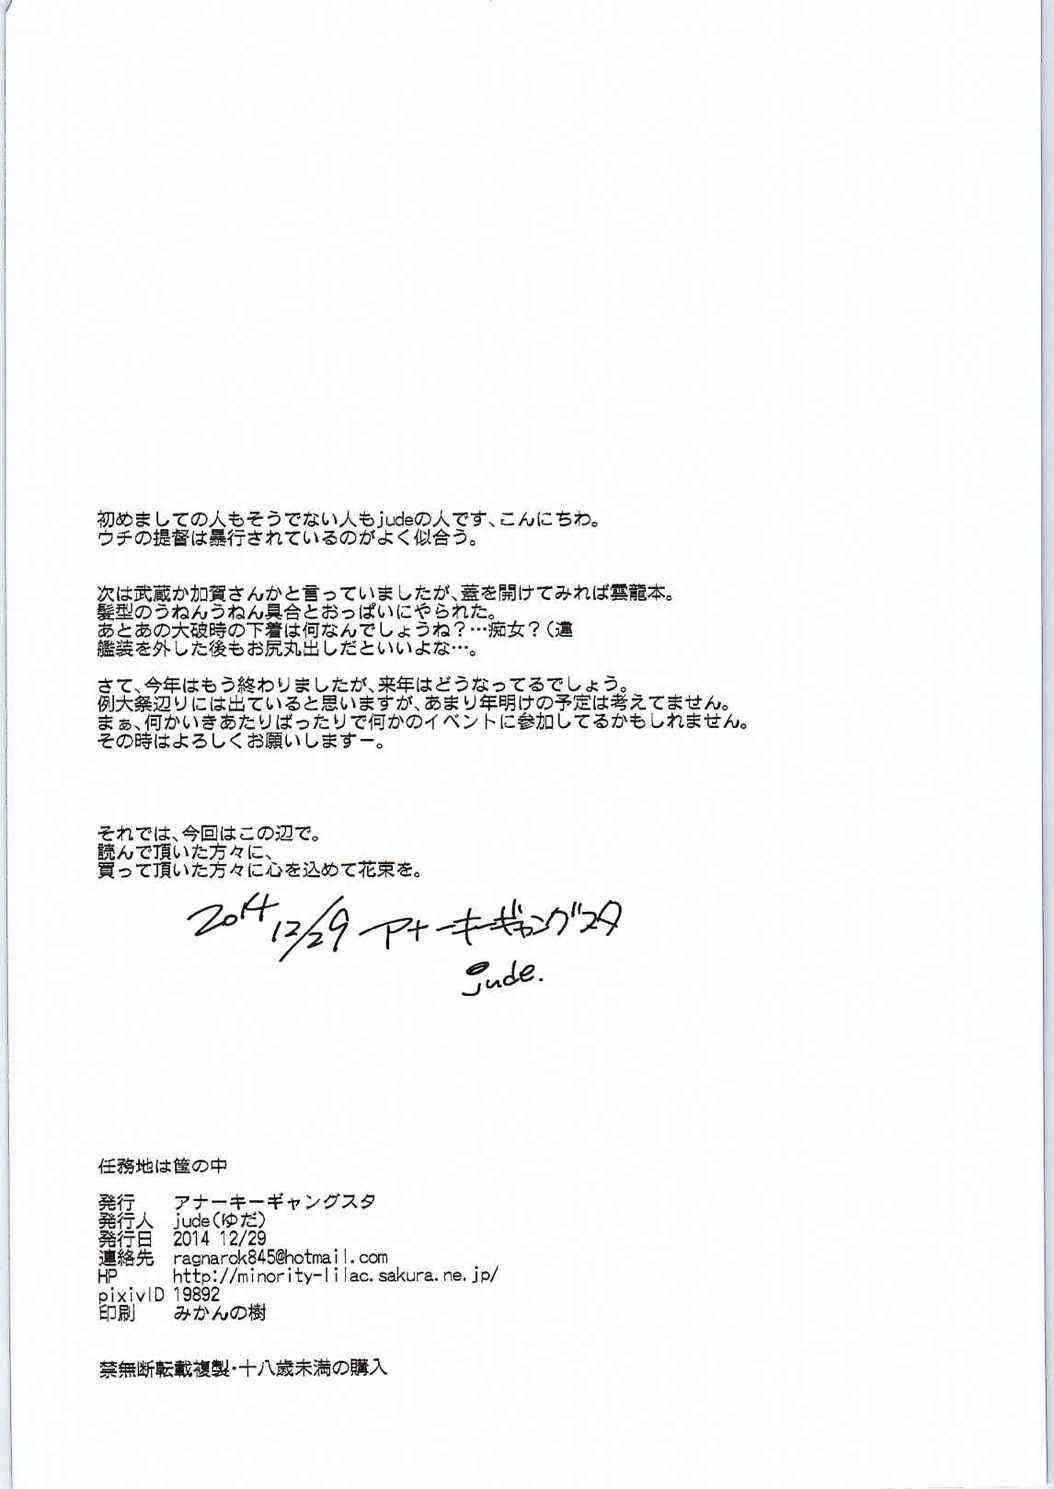 初めましての人もそうでない人もjudeの人です、こんにちわ。
ウチの提督は暴行されているのがよく似合う。
次は武蔵か加賀さんかと言っていましたが、蓋を開けてみれば雲龍本。
髪型のうねんうねん具合とおっぱいにやられた。
あとあの大破時の下着は何なんでしょうね？…痴女？（違
艦装を外した後もお尻丸出しだといいよな…。
さて、今年はもう終わりましたが、来年はどうなってるでしょう。
例大祭辺りには出ていると思いますが、あまり年明けの予定は考えてません。
まぁ、何かいきあたりばったりで何かのイベントに参加してるかもしれません。
その時はよろしくお願いしますー。
それでは、今回はこの辺で。
読んで頂いた方々に、
買って頂いた方々に心を込めて花束を。
2014 12/29 アナーキーギャングスタ
jude.
任務地は筐の中
発行 アナーキーギャングスタ
発行人 jude（ゆだ）
発行日 2014 12/29
連絡先 ragnarok845@hotmail.com
HP http://minority-lilac.sakura.ne.jp/
pixivID 19892
印刷 みかんの樹
禁無断転載複製・十八歳未満の購入